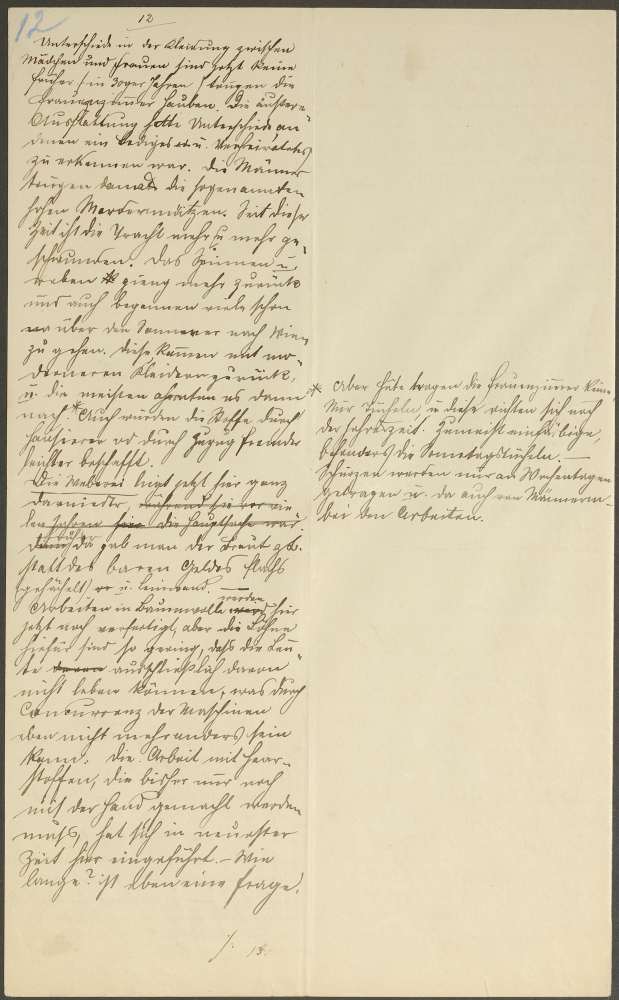 12
12
Unterschiede in der Kleidung zwischen
Mädchen und Frauen sind jetzt keine
früher (in 30ger Jahren) trugen die
Frauenzimmer Hauben. Die äußere
Ausstattung hatte Unterschiede an
denen ein lediges od. u. Verheiratetes
zu erkennen war. Die Männer
trugen damals die sogenannten
hohen Mardermützen. Seit dieser
Zeit ist die Tracht mehr u mehr ge-
schwunden. Das Spinnen u.
weben gieng mehr zurück
und auch begannen viele schon
um über den Sommer nach Wien
zu gehen. Diese kamen mit mo-
derneren Kleidern zurück,
u. die meisten ahmten es dann
nach * Auch wurden die Stoffe durch
Hausierer od durch Zuzug fremder
Leute beschafft.
Die Weberei liegt jetzt hier ganz
darnieder, während sie vor vie-
len Jahren hier die Hauptsache war.
Früher da gab man der Braut gb.
statt des baren Geldes Flachs
(gehächelt) u. Leinwand.
Arbeiten in Baumwolle werden hier
jetzt noch verfertigt, aber die Löhne
hiefür sind so gering, daß die Leu-
te davon ausschließlich davon
nicht leben können, was durch
Concurrenz der Maschinen
eben nicht mehr anders sein
kann. Die Arbeit mit Haar-
stoffen, die bisher nur noch
mit der Hand gemacht werden
muß, hat sich in neuester
Zeit hier eingeführt. – Wie
lange? ist eben eine Frage.
* Aber Hüte tragen die Frauenzimmer keine,
Nur Tücheln, u diese richten sich nach
der Jahreszeit. Zumeist einfärbige,
besonders die Sonntagstücheln. –
Schürzen werden nur an Wochentagen
getragen u. da auch von Männern
bei den Arbeiten.
./. 13.